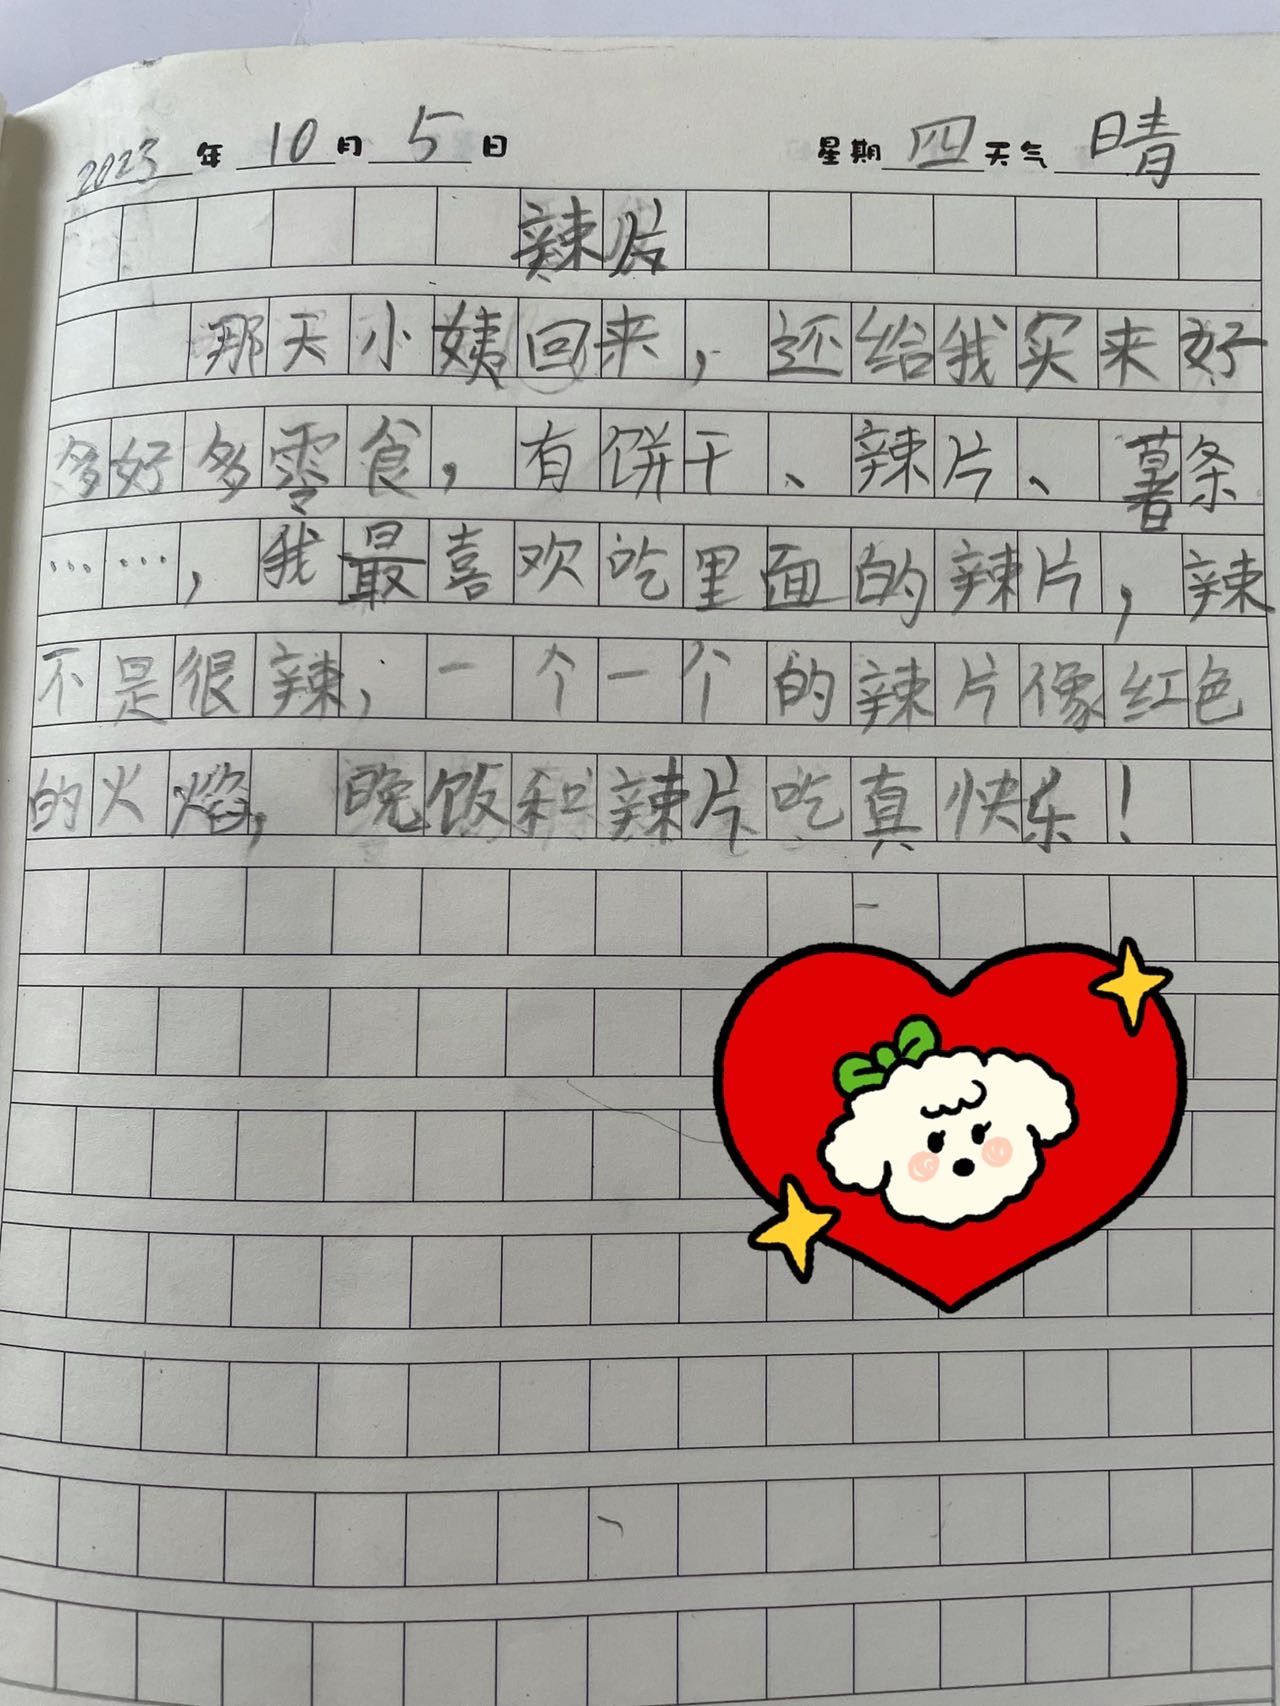 2023年10月5日 星期四 天气 晴
辣片
那天小姨回来，还给我买来好
多好多零食，有饼干、辣片、薯条
……，我最喜欢吃里面的辣片，辣
不是很辣，一个一个的辣片像红色
的火焰，晚饭和辣片吃真快乐！